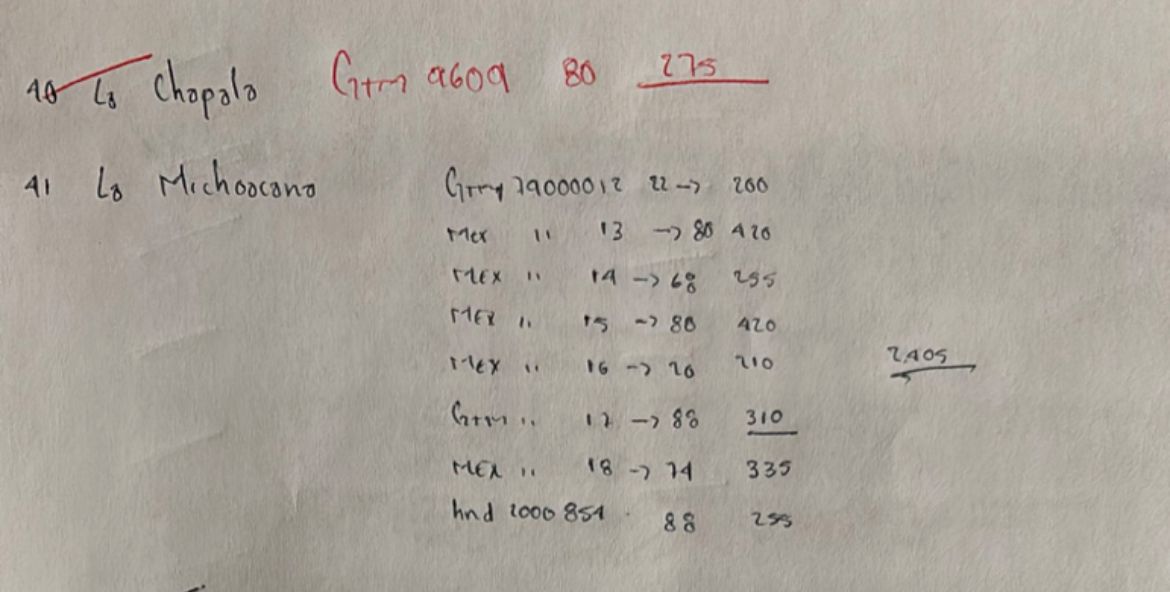 40 La Chapala Gtm 9609 80 275
41 La Michoacana Gtm 79000012 22 → 200
Mex " 13 → 80 420
MEX " 14 → 68 255
MEX " 15 → 80 420
MEX " 16 → 20 210
2405
Gtm " 17 → 88 310
MEX " 18 → 74 335
hnd 2000 854 88 255